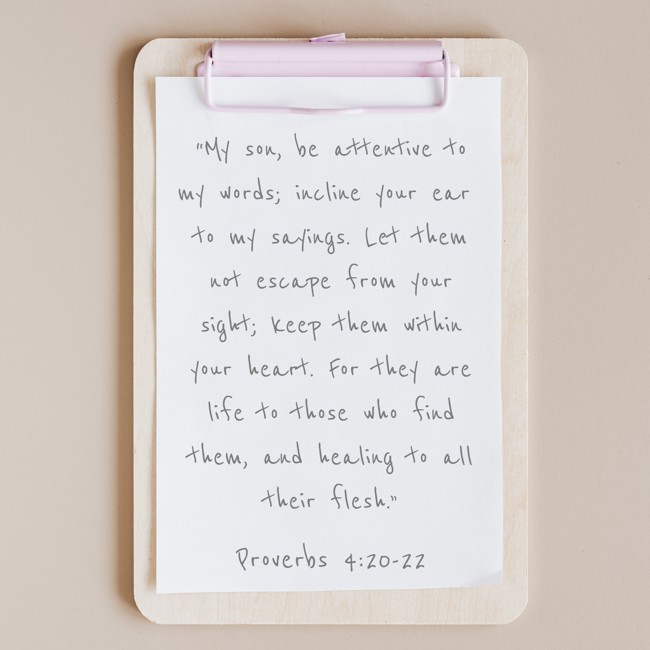 "My son, be attentive to
my words; incline your ear
to my sayings. Let them
not escape from your
sight; keep them within
your heart. For they are
life to those who find
them, and healing to all
their flesh."
Proverbs 4:20-22